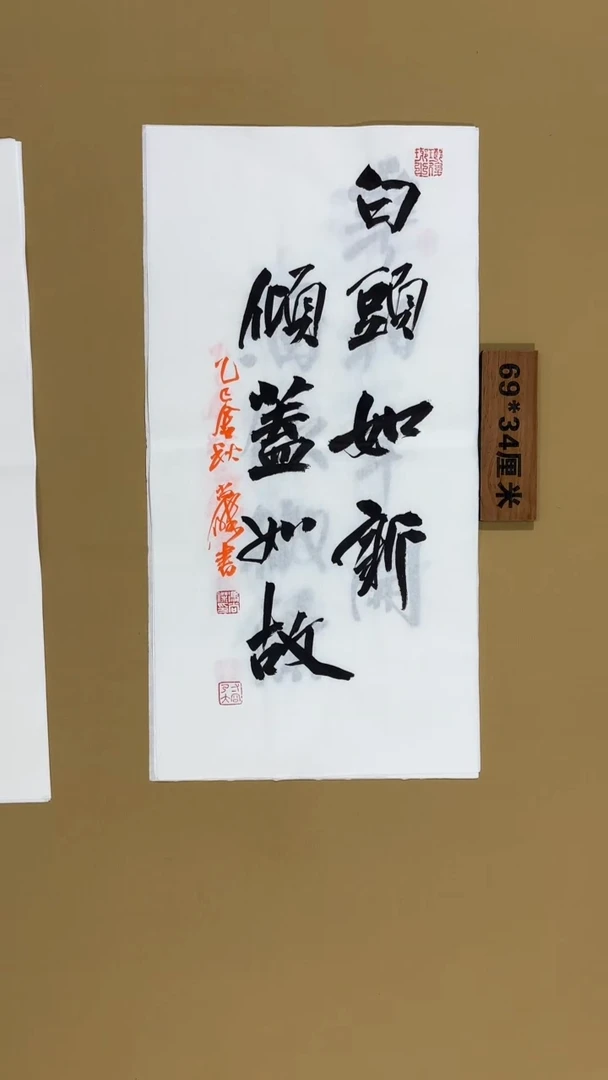 白頭如新
傾蓋如故
乙巳金秋
書
69*34厘米